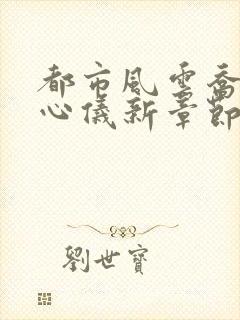 都市風雲喬
心儀新章節
劉世寶